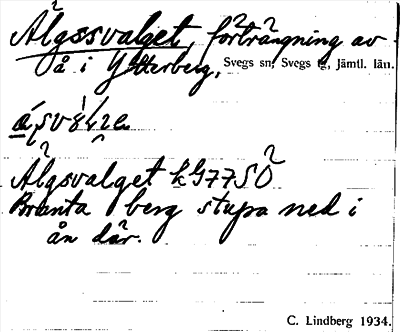 Älgssvalget, förträngning av
å i Ytterberg, Svegs sn, Svegs tg, Jämtl. län.
Älgsvalget
Branta berg stupa ned i
ån där.
C. Lindberg 1934.